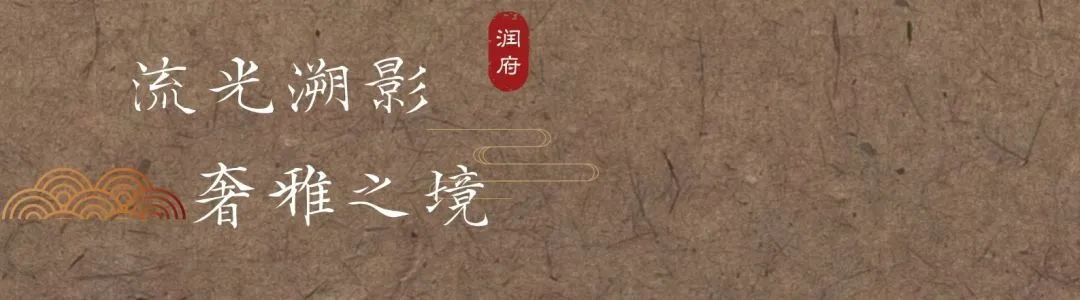 流光溯影
润府
奢雅之境